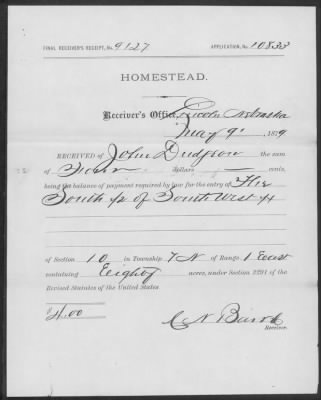 FINAL RECEIVER'S RECEIPT, No. 9127 APPLICATION, No. 10833
HOMESTEAD.
Receiver's Office, Lincoln Nebraska
May 9th 1879
RECEIVED OF John Dudgeon the sum
of Four dollars — cents,
being the balance of payment required by law for the entry of The
South ½ of South West ¼
of Section 10 in Township 7 N of Range 1 East
containing Eighty acres, under Section 2291 of the
Revised Statutes of the United States.
$4.00
C N Baird
Receiver.